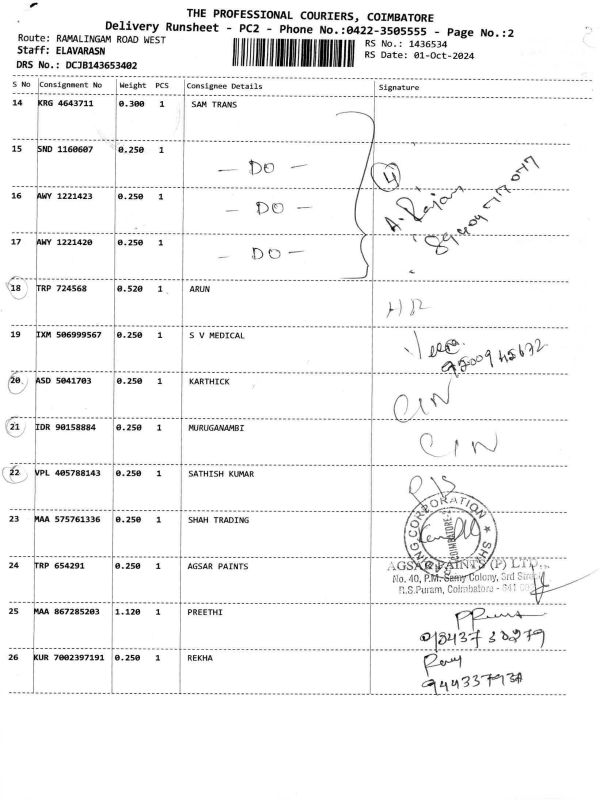 THE PROFESSIONAL COURIERS, COIMBATORE
Delivery Runsheet - PC2 - Phone No.:0422-3505555 - Page No.:2
Route: RAMALINGAM ROAD WEST
RS No.: 1436534
Staff: ELAVARASN
RS Date: 01-Oct-2024
DRS No.: DCJB143653402
S No Consignment No Weight PCS Consignee Details Signature
14 KRG 4643711 0.300 1 SAM TRANS
15 SND 1160607 0.250 1 - DO -
4
16 AWY 1221423 0.250 1 - DO -
A. Rajan
17 AWY 1221420 0.250 1 - DO -
18 TRP 724568 0.520 1 ARUN
19 IXM 506999567 0.250 1 S V MEDICAL
20 ASD 5041703 0.250 1 KARTHICK
CIN
21 IDR 90158884 0.250 1 MURUGANAMBI
CIN
22 VPL 405788143 0.250 1 SATHISH KUMAR
23 MAA 575761336 0.250 1 SHAH TRADING
SHAH TRADING CORPORATION
COIMBATORE
24 TRP 654291 0.250 1 AGSAR PAINTS
AGSAR PAINTS (P) LTD.,
No. 40, P.M. Samy Colony, 3rd Street
R.S.Puram, Coimbatore - 641
25 MAA 867285203 1.120 1 PREETHI
26 KUR 7002397191 0.250 1 REKHA